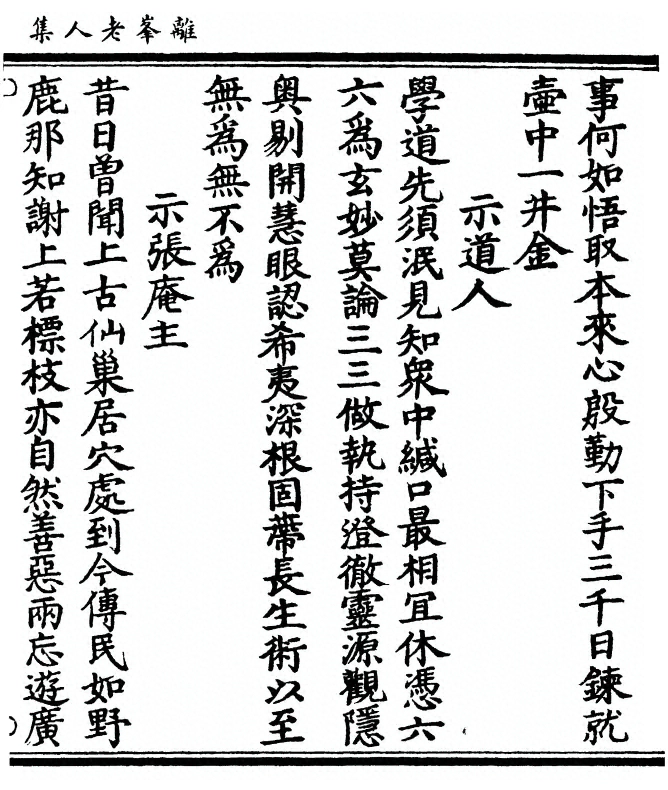 離峯老人集
事何如悟取本來心殷勤下手三千日鍊就
壼中一井金
示道人
學道先須泯見知衆中緘口最相冝休憑六
六爲玄妙莫論三三做執持澄徹靈源觀隱
奥剔開慧眼認希夷深根固蔕長生術以至
無爲無不爲
示張庵主
昔日曽聞上古仙巢居穴處到今傳民如野
鹿那知謝上若標枝亦自然善惡兩忘遊廣